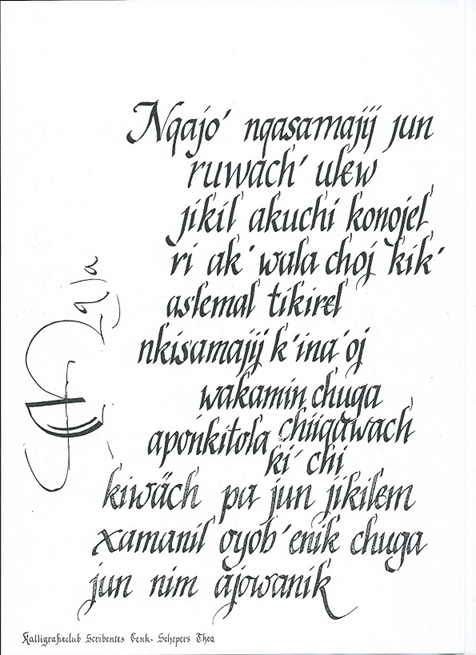 Nqajo´ nqasamajij jun
ruwäch´ ulew
jikil akuchi konojel
ri ak´wala choj kik´
aslemal tikirel
nkisamajij k´ina´oj
wakamin chuqa
aponkitola chiiqawach
ki´ chi
kiwäch pa jun jikilem
xamanil oyob´enik chuqa
jun nim ajowanik
Kalligrafieclub Scribentes Genk- Schepers Thea